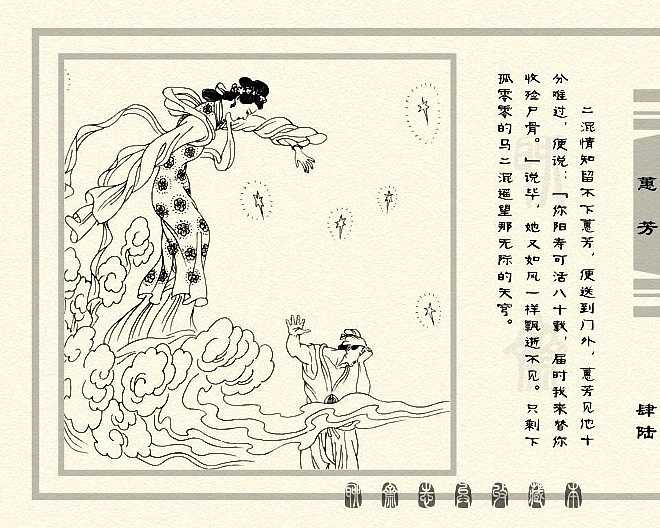 二混情知留不下蕙芳，便送到门外，蕙芳见他十
分难过，便说：“你阳寿可活八十载，届时我来替你
收殓尸骨。”说毕，她又如风一样飘逝不见。只剩下
孤零零的马二混遥望那无际的天穹。
蕙芳
肆陆